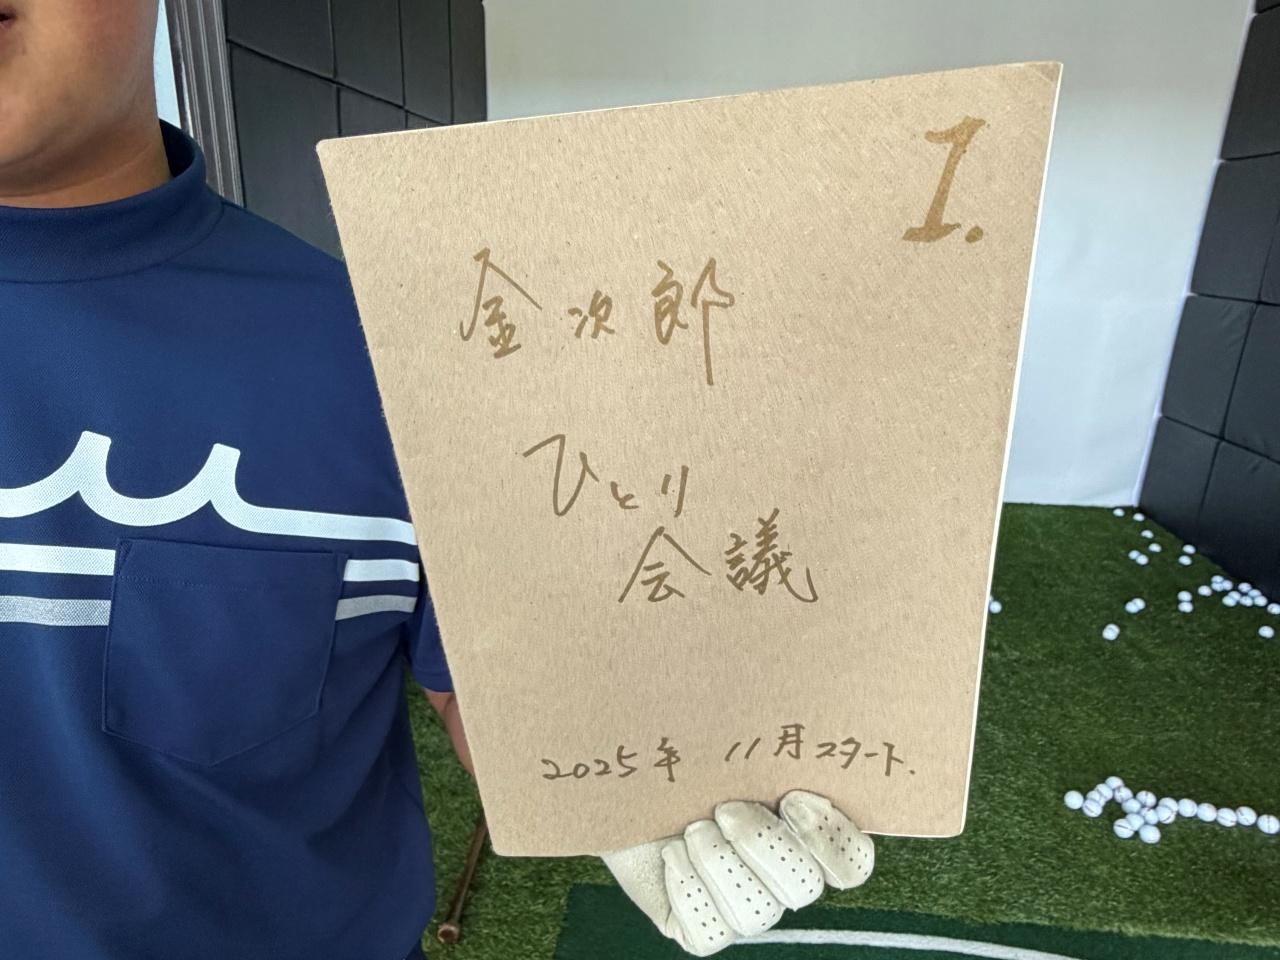 1.
金次郎
ひとり
会議
2025年 11月スタート.